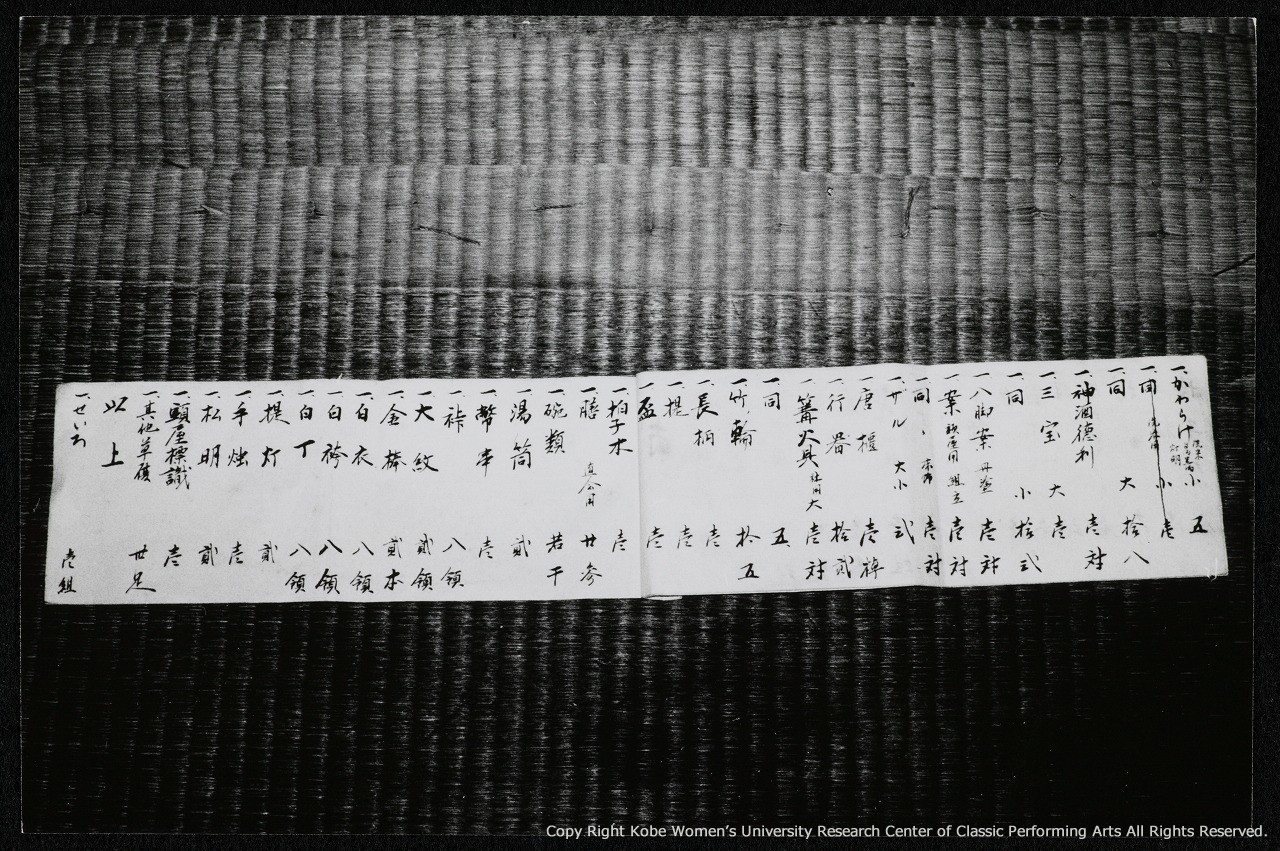 一、かわらけ 小 五
一、同 洗米用 小 壱
一、同 大 拾八
一、神酒徳利 壱対
一、三宝 大 壱
一、同 小 拾弐
一、八脚案 丹塗 壱
一、案 組立 壱対
一、同、 壱対
一、ザル 大小 弐
一、唐櫃 壱棹
一、行器 拾貮
一、篝火具 社用 大 壱対
一、同 五
一、竹輪 拾五
一、長柄 壱
一、提 壱
一、盃 壱
一、拍子木 壱
一、膳 直会用 廿参
一、碗類 若干
一、湯筒 貮
一、幣串 壱
一、裃 八領
一、大紋 貮領
一、金棒 貮本
一、白衣 八領
一、白袴 八領
一、白丁 八領
一、提灯 貮
一、手燭 壱
一、松明 貮
一、頭屋標識 壱
一、其他草履 廿足
以上
一、せいろ 壱組
Copy Right Kobe Women's University Research Center of Classic Performing Arts All Rights Reserved.